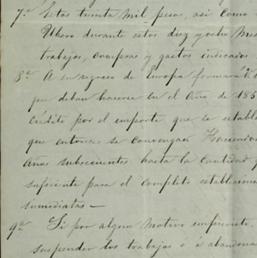 7.ª Estos treinta mil pesos, así como
Ulloa durante estos diez y ocho Mes
trabajos, compras y gastos indicados
8.ª A su regreso de Europa formará
que deban hacerse en el Año de 185
crédito por el importe que se estable
que entonces se convengan Haciendo
Años subsecuentes hasta la Cantidad
suficiente para el completo establecimien
inmediatas —
9.ª Si por algun Motivo imprevisto
suspender los trabajos ó a abandona